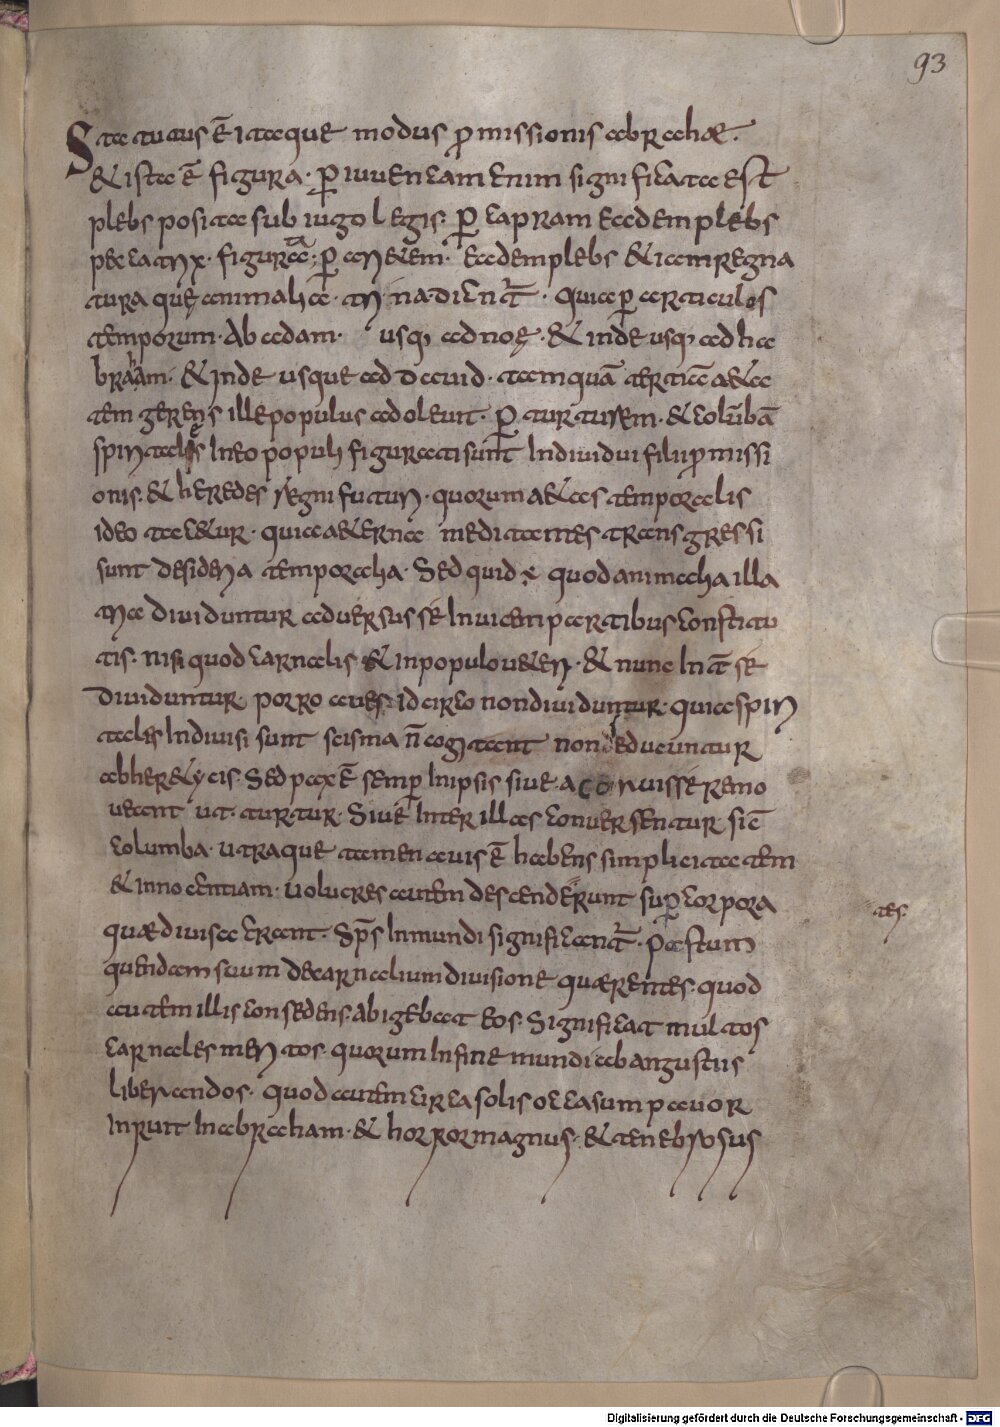 93
Statutus ē itaque modus p̱missionis abrahae.
& ista ē figura. p̱ iuuencam enim significata est
plebs posita sub iugo legis. p̱ capram eadem plebs
peccatrix. figurata: p̱ arietem. eadem plebs & iam regna
tura quę animalia. trina. dicunt̄. quia p̱ articulos
temporum. Ab adam. usq; ad noę. & inde usq; ad ha
braham. & inde usque ad dauid. tamquā tertiā aeta
tem gerens ille populus adoleuit. p̱ turturem. & colūbā
spiritalęs In eo populi figurati sunt Indiuidui filii p̱missi
onis. & heredes regni futuri. quorum aetas temporalis
ideo tacetur. quia aeterna meditantes transgressi
sunt desideria temporalia. Sed quid ÷ quod animalia illa
tria diuiduntur aduersus se Inuicem partibus constitu
tis. nisi quod carnalis & in populo ueteri. & nunc Int̄ se
diuiduntur. porro aues. idcirco non diuiduntur. quia spiri
tales Indiuisi sunt scisma n̄ cogitant non seducuntur
ab heretycis. Sed pax ē semp̱ In ipsis siue a conuisse remo
ueant ut. turtur. Siue Inter illas conuersentur. si ē
columba. utraque tamen auis ē habens simplicitatem
& innocentiam. uolucres autem descenderunt sup̱ corpora
quae diuisa erant. Sp̄s Inmundi significant̄. Pastum
quendam suum de carnalium diuisione quaerentes. quod
tes.
autem illis consedens. abigebat eos. Significat multos
carnales meritos. quorum In fine mundi ab angustiis
liberandos. quod autem circa solis occasum pauor
Inruit In abraham. & horror magnus. & tenebrosus
Digitalisierung gefördert durch die Deutsche Forschungsgemeinschaft - DFG